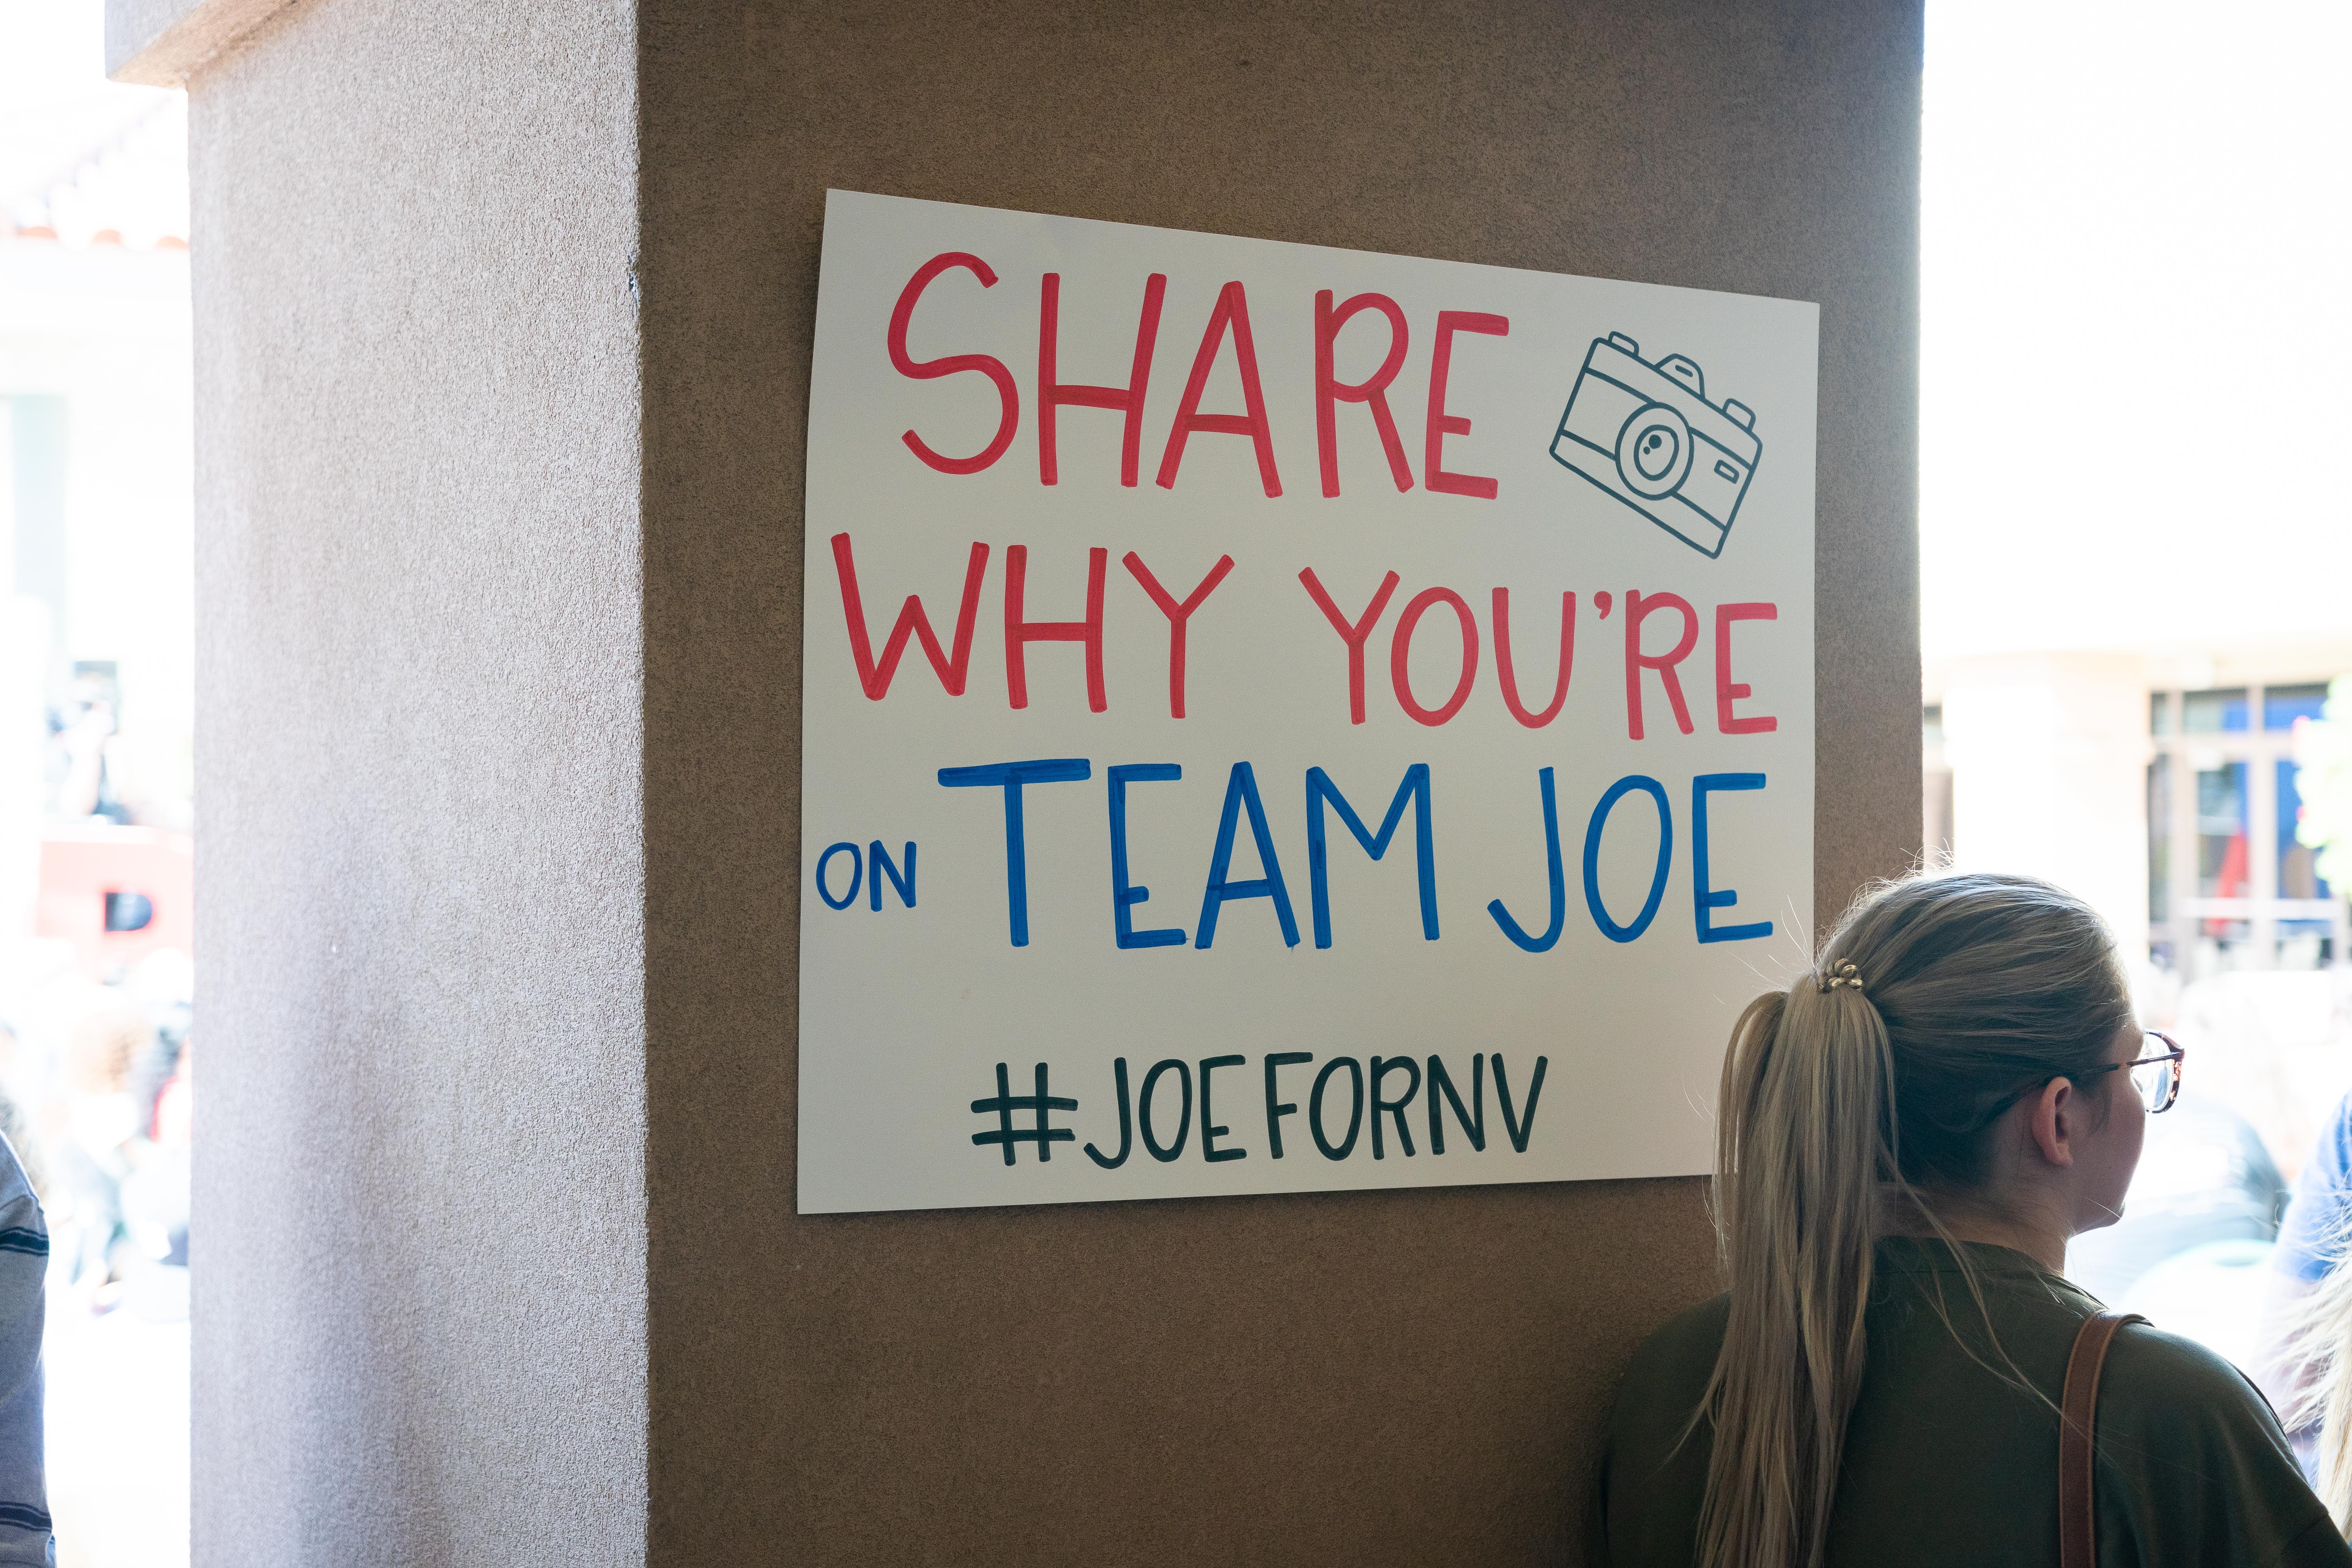 SHARE
WHY YOU'RE
ON TEAM JOE
#JOEFORNV